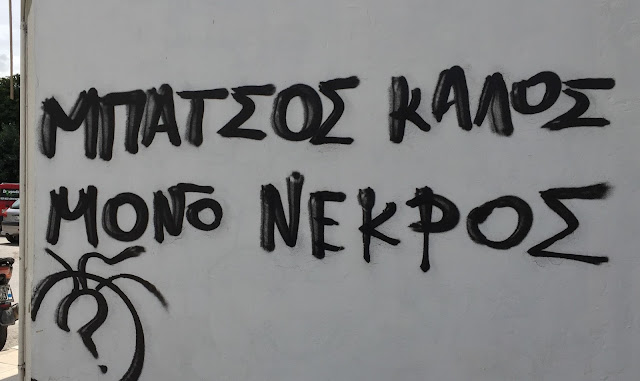 ΜΠΑΤΣΟΣ ΚΑΛΟΣ
ΜΟΝΟ ΝΕΚΡΟΣ
?